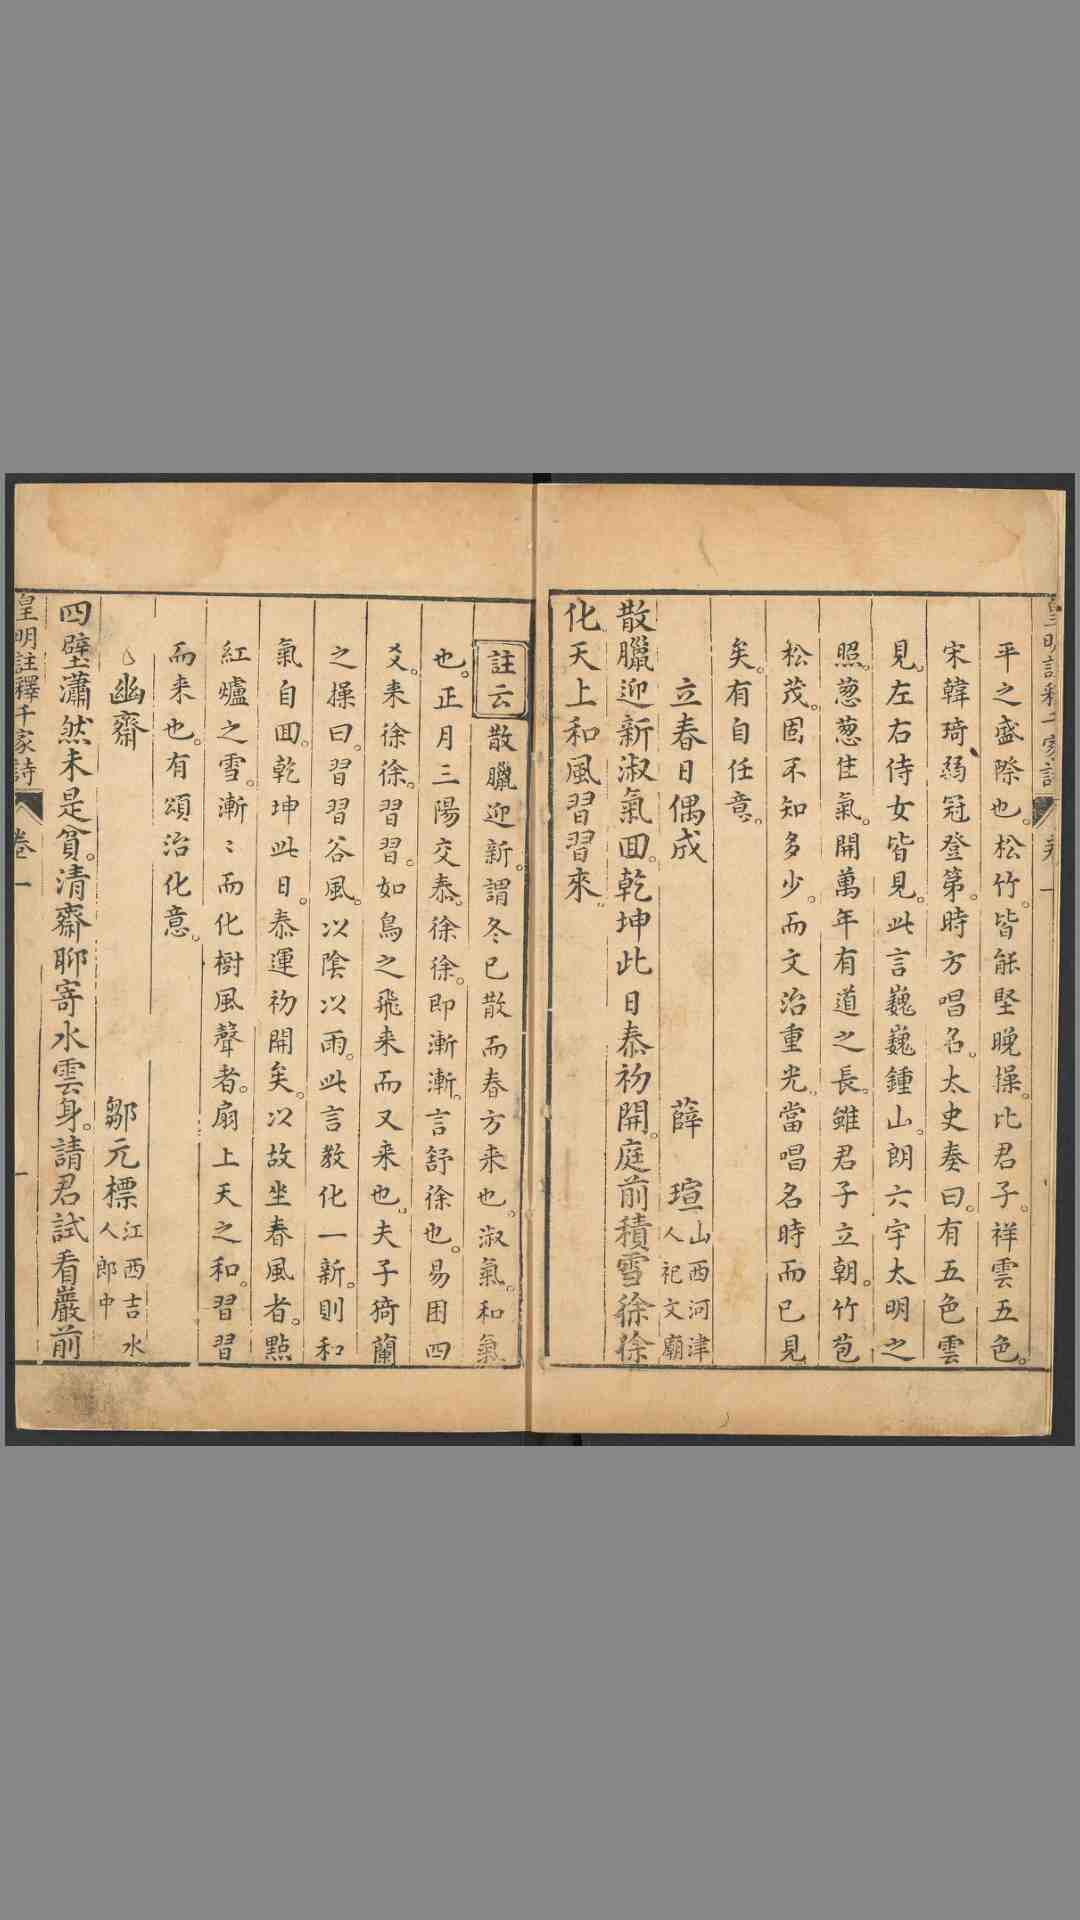 平之盛際也。松竹。皆能堅晚操。比君子。祥雲五色。
宋韓琦弱冠登第。時方唱名。太史奏曰。有五色雲
見。左右侍女皆見。此言巍巍鍾山。朗六宇太明之
照。葱葱佳氣。開萬年有道之長。雖君子立朝。竹苞
松茂。固不知多少。而文治重光。當唱名時而已見
矣。有自任意。
立春日偶成 薛瑄 山西河津人祀文廟
散臘迎新淑氣回。乾坤此日泰初開。庭前積雪徐徐
化天上和風習習來。
註云 散臘迎新。謂冬已散而春方来也。淑氣。和氣
也。正月三陽交泰。徐徐。即漸漸。言舒徐也。易困四
爻。来徐徐。習習。如鳥之飛来而又来也。夫子猗蘭
之操曰。習習谷風。以陰以雨。此言教化一新。則和
氣自回。乾坤此日。泰運初開矣。以故坐春風者。點
紅爐之雪。漸〻而化樹風聲者。扇上天之和。習習
而来也。有頌治化意。
幽齋 鄒元標 江西吉水人郎中
四壁瀟然未是貧。清齋聊寄水雲身。請君試看巖前
皇明註釋千家詩 卷一